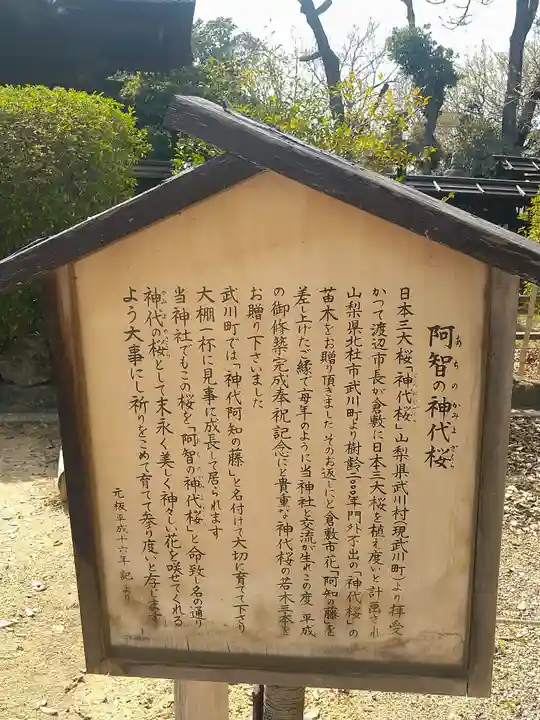 阿智の神代桜
あちのかみよざくら
日本三大桜「神代桜」山梨県武川村(現武川町)より拝受
かつて渡辺市長が倉敷に日本三大桜を植え度いと計画され
山梨県北杜市武川町より樹齢二〇〇〇年門外不出の「神代桜」の
苗木をお贈り頂きました そのお返しにと倉敷市花「阿知の藤」を
差し上げたご縁で毎年のように当神社と交流が生れこの度 平成
の御修築完成奉祝記念にと貴重な神代桜の若木三本を
お贈り下さいました
武川町では「神代阿知の藤」と名付けて大切に育てて下さり
大棚一杯に見事に成長して居られます
当神社でもこの桜を「阿智の神代桜」と命致し名の通り
神代の桜として末永く美しく神々しい花を咲せてくれる
よう大事にし祈りをこめて育てて参り度いと存じます
元板平成十六年記より